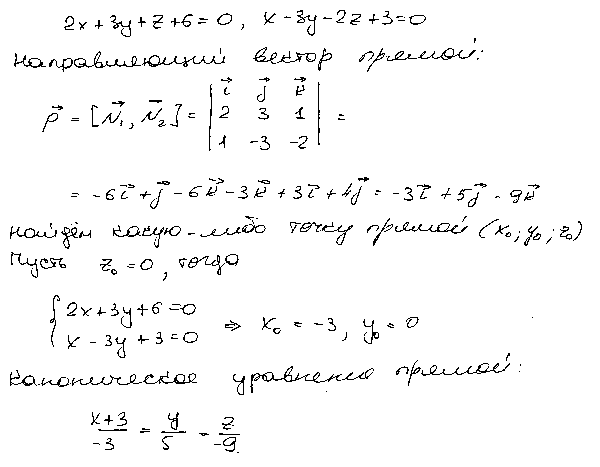 2x+3y+z+6=0, x-3y-2z+3=0
Направляющий вектор прямой:
p⃗ = [N⃗₁, N⃗₂] = | i⃗ j⃗ k⃗ |
| 2 3 1 | =
| 1 -3 -2 |
= -6i⃗+j⃗-6k⃗-3k⃗+3i⃗+4j⃗ = -3i⃗+5j⃗-9k⃗
найдём какую-либо точку прямой (x₀; y₀; z₀)
Пусть z₀=0, тогда
{ 2x+3y+6=0
x-3y+3=0 ⇒ x₀ = -3, y₀ = 0
Каноническое уравнение прямой:
(x+3)/-3 = y/5 = z/-9